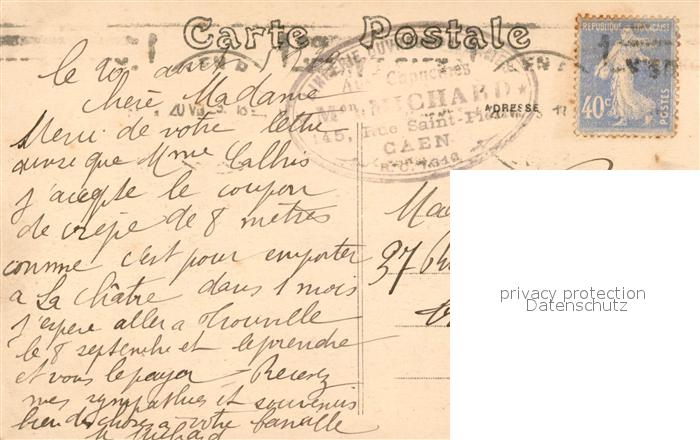 Carte Postale
AUX Capucines
Mon MICHARD
145, Rue Saint-Pierre
CAEN
R.C. 1316
ADRESSE
REPUBLIQUE FRANÇAISE
40c
POSTES
le 20 
Chère Madame
Merci de votre lettre
ainsi que Mme
j'accepte le coupon
de crêpe de 8 mètres
comme c'est pour emporter
a La Châtre dans 1 mois
j'espere aller a Trouville
le 8 septembre et le prendre
et vous le payer Recevez
mes sympathies et souvenirs
bien des choses a votre famille
Michard
37
privacy protection
Datenschutz